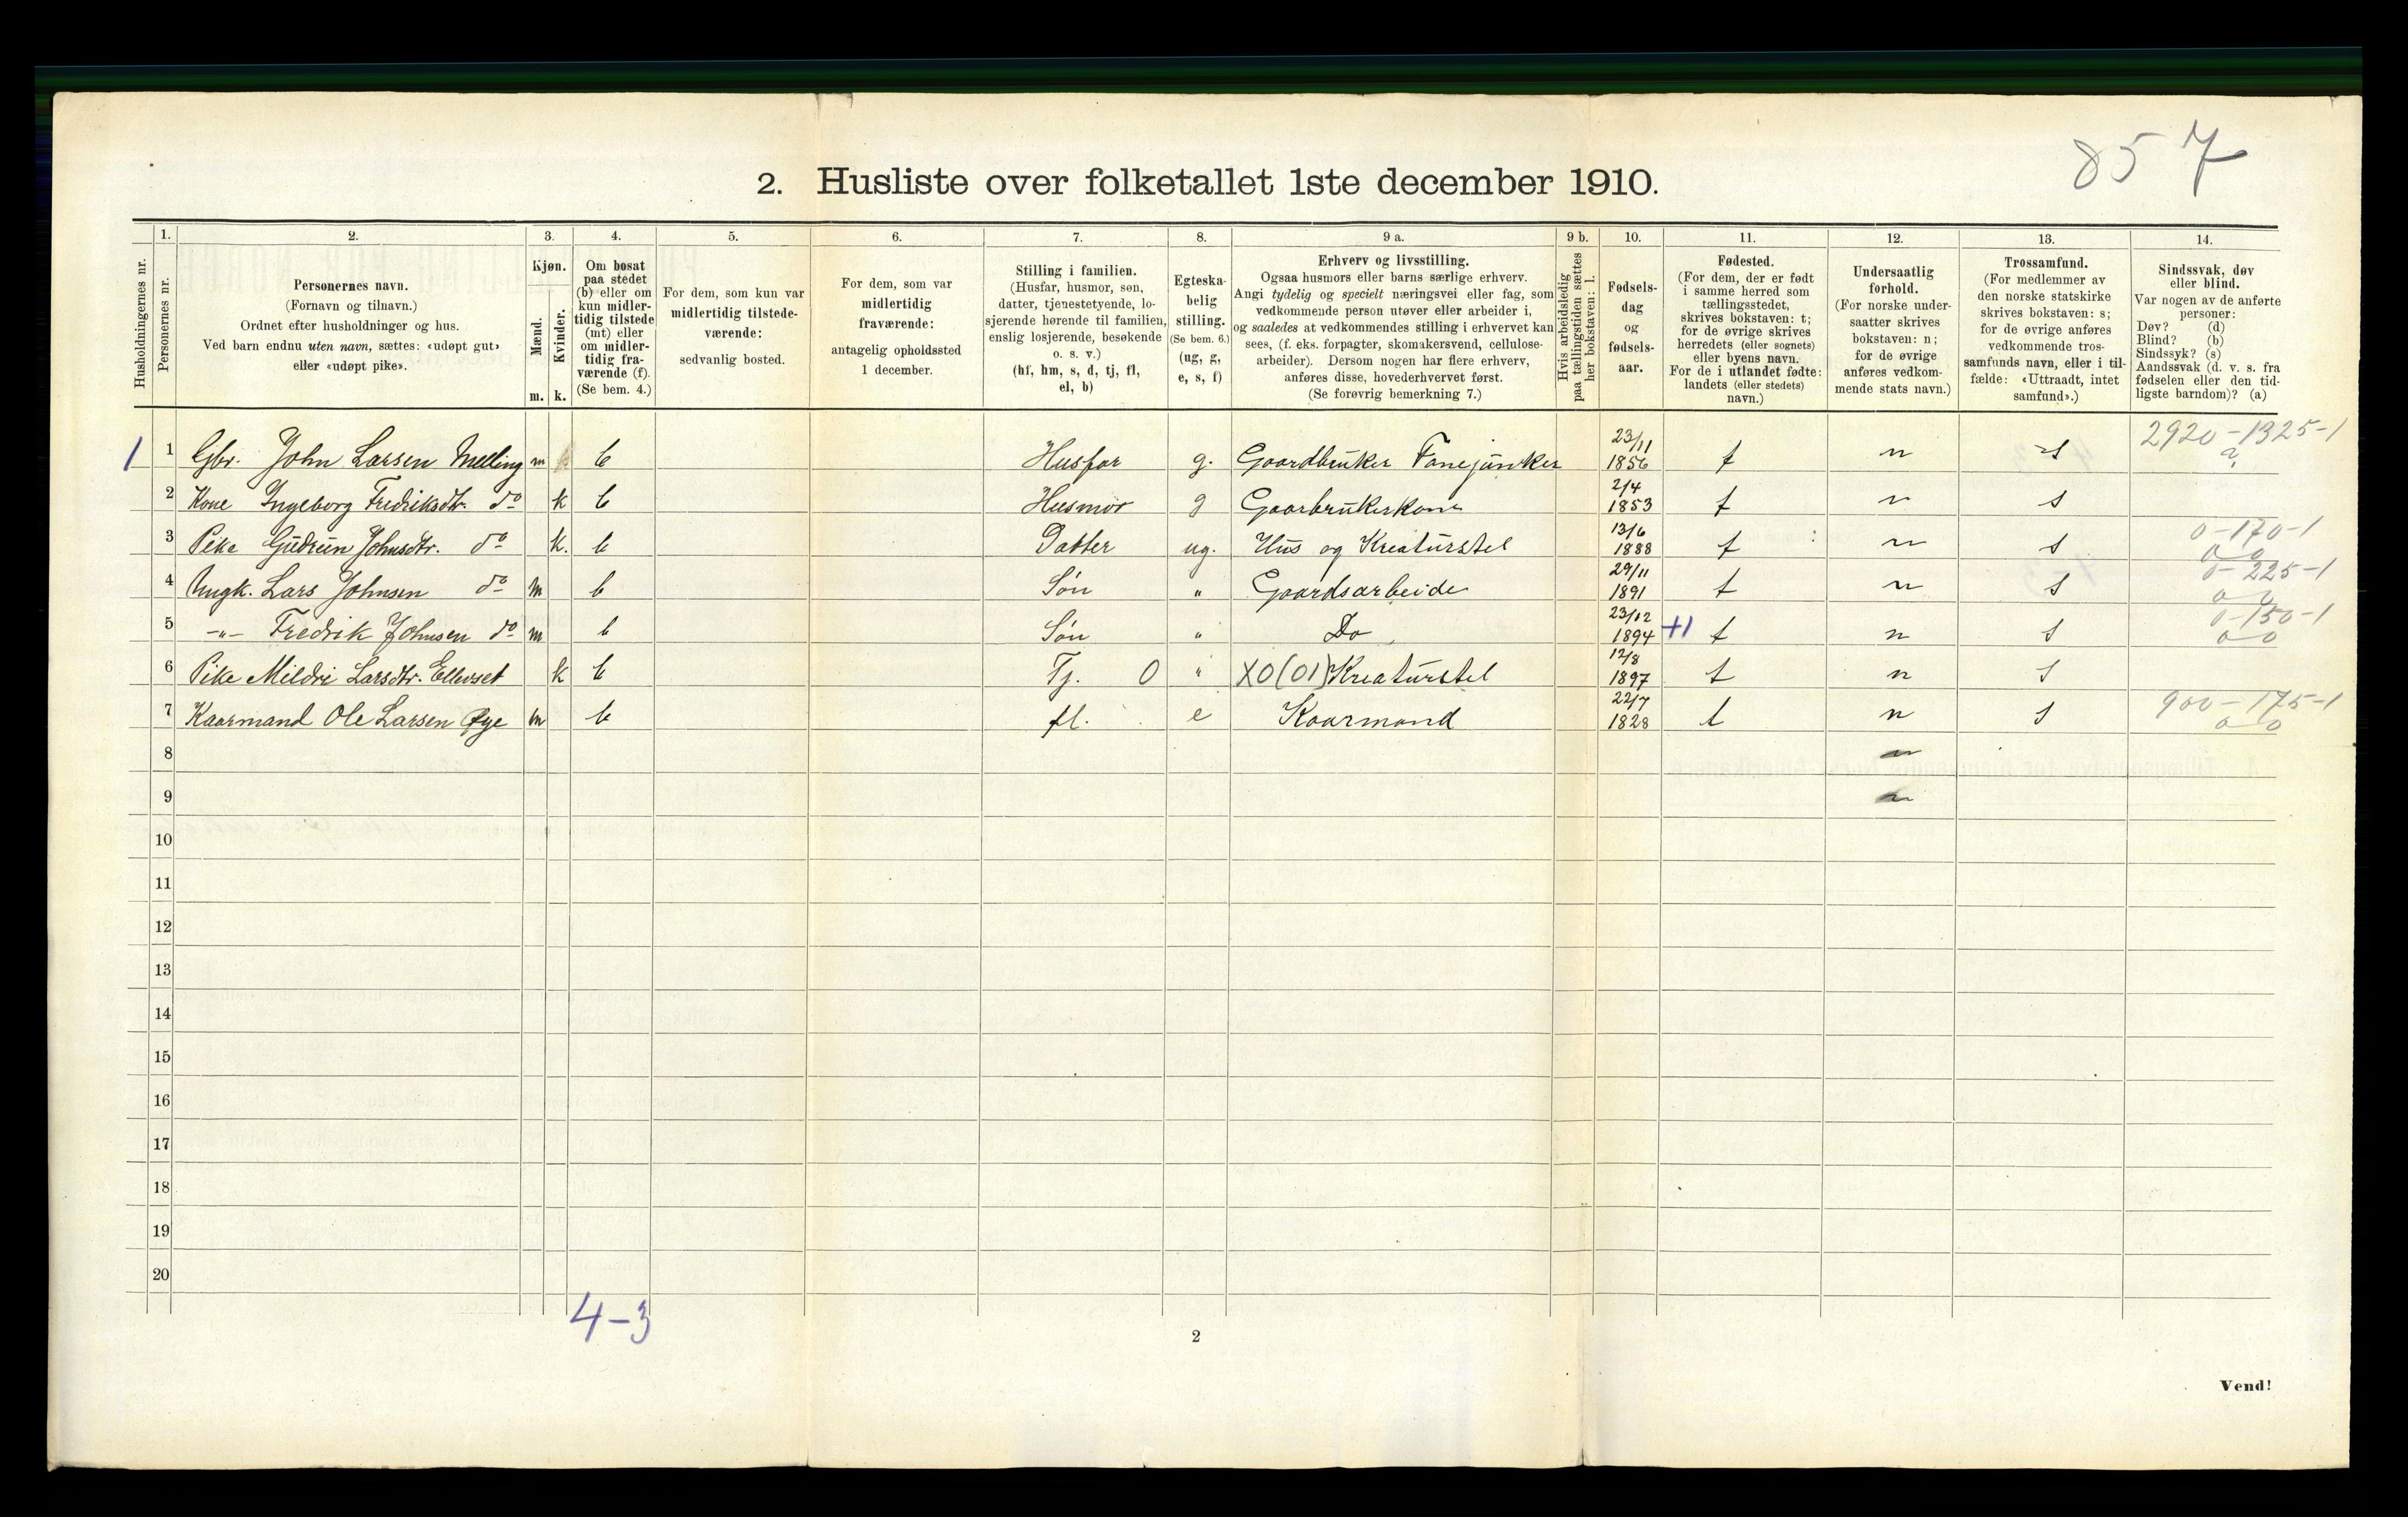 857
2. Husliste over folketallet 1ste december 1910.
Husholdningernes nr.
1.
Personernes nr.
2.
Personernes navn.
(Fornavn og tilnavn.)
Ordnet efter husholdninger og hus.
Ved barn endnu uten navn, sættes: «udøpt gut»
eller «udøpt pike».
3.
Kjøn.
Mænd.
Kvinder.
m. k.
4.
Om bosat
paa stedet
(b) eller om
kun midler-
tidig tilstede
(mt) eller
om midler-
tidig fra-
værende (f).
(Se bem. 4.)
5.
For dem, som kun var
midlertidig tilstede-
værende:
sedvanlig bosted.
6.
For dem, som var
midlertidig
fraværende:
antagelig opholdssted
1 december.
7.
Stilling i familien.
(Husfar, husmor, søn,
datter, tjenestetyende, lo-
sjerende hørende til familien,
enslig losjerende, besøkende
o. s. v.)
(hf, hm, s, d, tj, fl,
el, b)
8.
Egteska-
belig
stilling.
(Se bem. 6.)
(ug, g,
e, s, f)
9 a.
Erhverv og livsstilling.
Ogsaa husmors eller barns særlige erhverv.
Angi tydelig og specielt næringsvei eller fag, som
vedkommende person utøver eller arbeider i,
og saaledes at vedkommendes stilling i erhvervet kan
sees, (f. eks. forpagter, skomakersvend, cellulose-
arbeider). Dersom nogen har flere erhverv,
anføres disse, hovederhvervet først.
(Se forøvrig bemerkning 7.)
9 b.
Hvis arbeidsledig
paa tællingstiden sættes
her bokstaven: l.
10.
Fødsels-
dag
og
fødsels-
aar.
11.
Fødested.
(For dem, der er født
i samme herred som
tællingsstedet,
skrives bokstaven: t;
for de øvrige skrives
herredets (eller sognets)
eller byens navn.
For de i utlandet fødte:
landets (eller stedets)
navn.)
12.
Undersaatlig
forhold.
(For norske under-
saatter skrives
bokstaven: n;
for de øvrige
anføres vedkom-
mende stats navn.)
13.
Trossamfund.
(For medlemmer av
den norske statskirke
skrives bokstaven: s;
for de øvrige anføres
vedkommende tros-
samfunds navn, eller i til-
fælde: «Uttraadt, intet
samfund».)
14.
Sindssvak, døv
eller blind.
Var nogen av de anførte
personer:
Døv? (d)
Blind? (b)
Sindssyk? (s)
Aandssvak (d. v. s. fra
fødselen eller den tid-
ligste barndom)? (a)
1 1 Gbr. John Larsen Melling m b Husfar g. Gaardbruker Fanejunker 23/11 1856 t n s 2920-1325-1 ?
2 Kone Ingeborg Fredriksdtr. do k b Husmor g Gaarbrukerkone 2/4 1853 t n s
3 Pike Gudrun Johnsdtr. do k. b Datter ug. Hus og Kreaturstel 13/6 1888 t n s 0-170-1 0 0
4 Ungk. Lars Johnsen do m b Søn " Gaardsarbeide 29/11 1891 t n s 0-225-1 0 0
5 -"- Fredrik Johnsen do m b Søn " Do 23/12 1894 +1 t n s 0-150-1 0 0
6 Pike Mildri Larsdtr. Ellevset k b Tj. 0 " X0(01) Kreaturstel 12/8 1897 t n s
7 Kaarmand Ole Larsen Øye m b fl. e Kaarmand 22/7 1828 t n s 900-175-1 0 0
8 n
9 n
10
11
12
13
14
15
16
17
18
19
20
4-3
2
Vend!